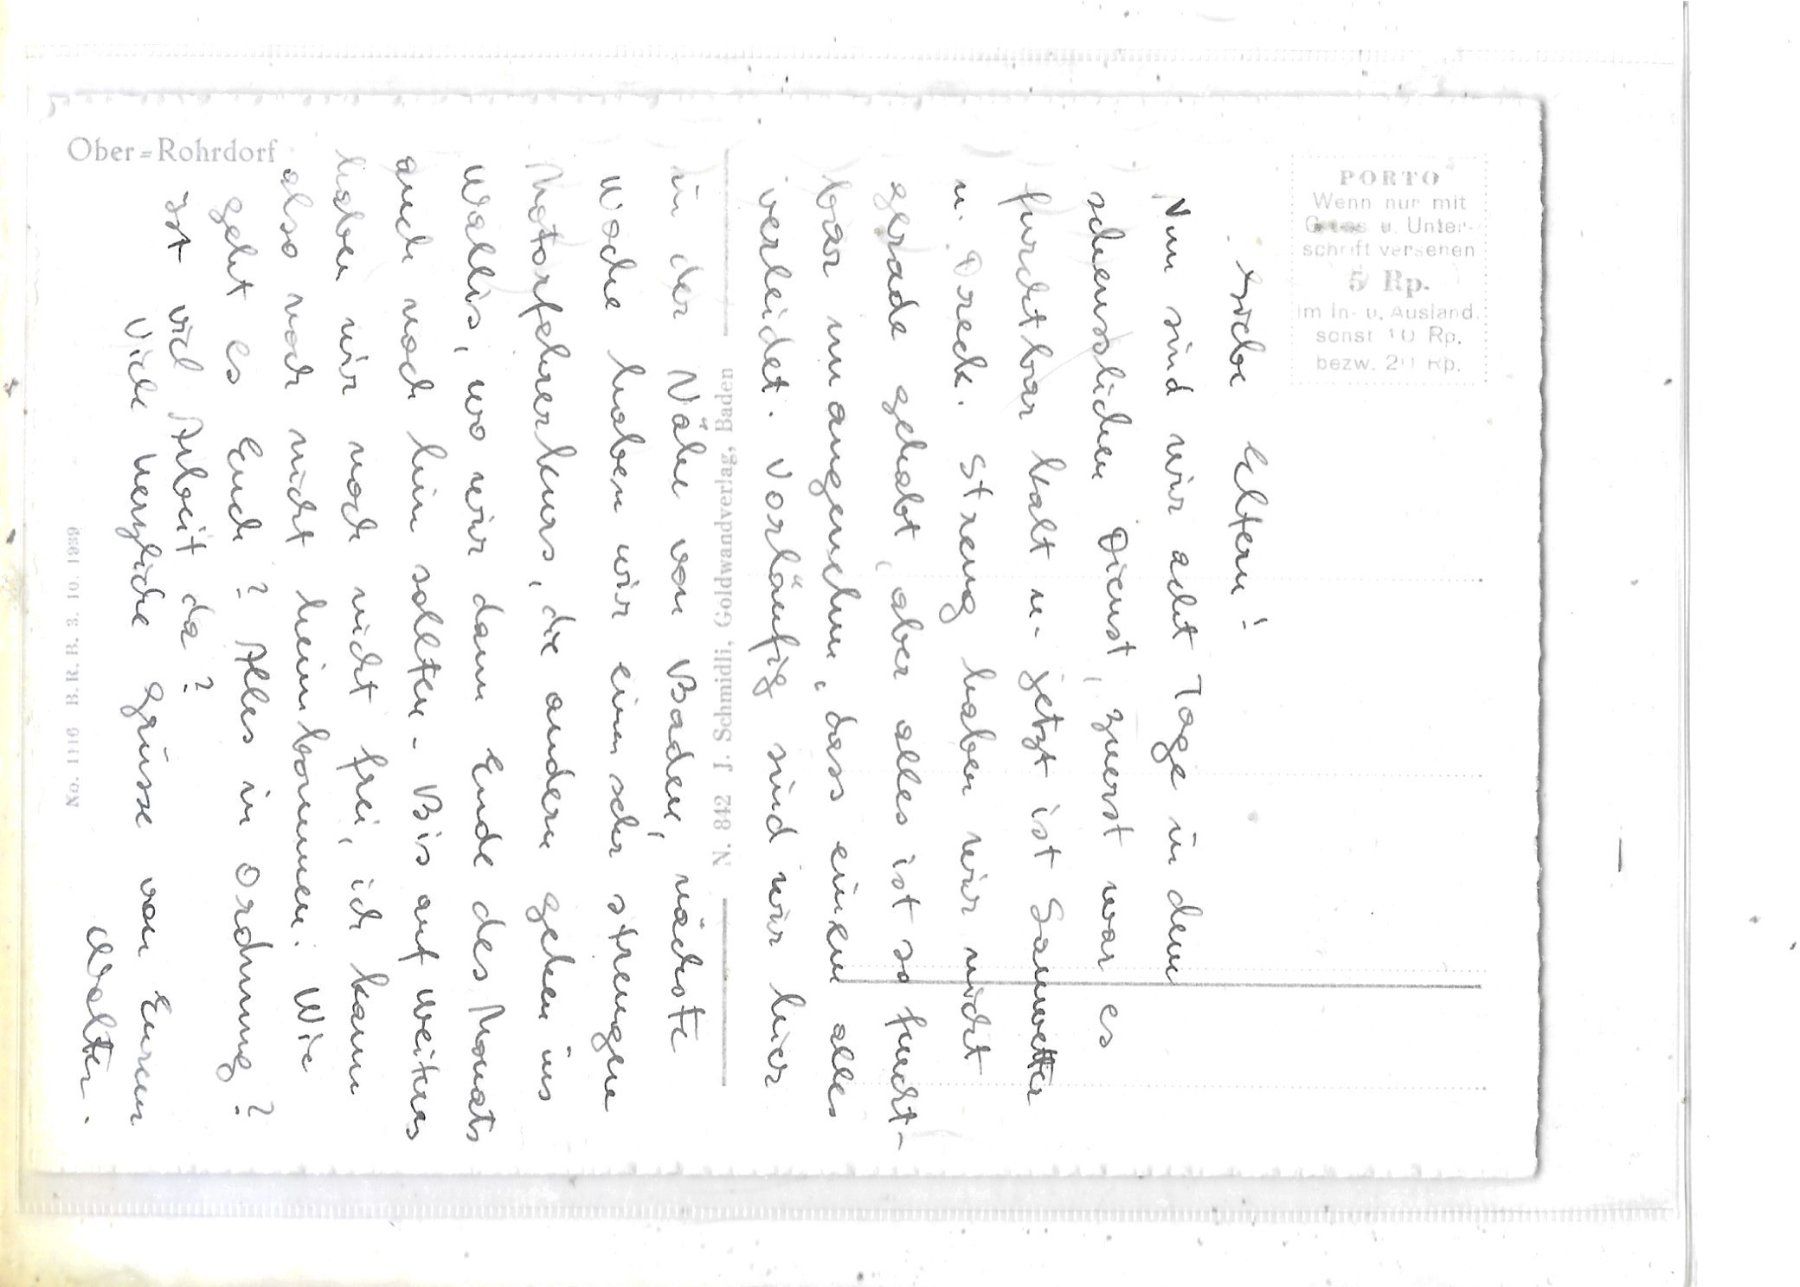 Ober=Rohrdorf
PORTO
Wenn nur mit
Gruss u. Unter-
schrift versehen
5 Rp.
im In- u. Ausland.
sonst 10 Rp.
bezw. 20 Rp.
N. 842 J. Schmidli, Goldwandverlag, Baden
No. 1116 B.R.B. 3. 10. 1939
Liebe Eltern!
Nun sind wir acht Tage in dem
scheusslichen Dienst, zuerst war es
furchtbar kalt u. jetzt ist Sauwetter
u. Dreck. Streng haben wir nicht
gerade gehabt, aber alles ist so furcht-
bar unangenehm, dass einem alles
verleidet. Vorläufig sind wir hier
in der Nähe von Baden, nächste
Woche haben wir einen sehr strengen
Motorfahrerkurs, die andern gehen ins
Wallis, wo wir dann Ende des Monats
auch noch hin sollten. Bis auf weiteres
haben wir noch nicht frei, ich kann
also noch nicht heimkommen. Wie
geht es Euch? Alles in Ordnung?
Ist viel Arbeit da?
Viele herzliche Grüsse von Eurem
Walter.